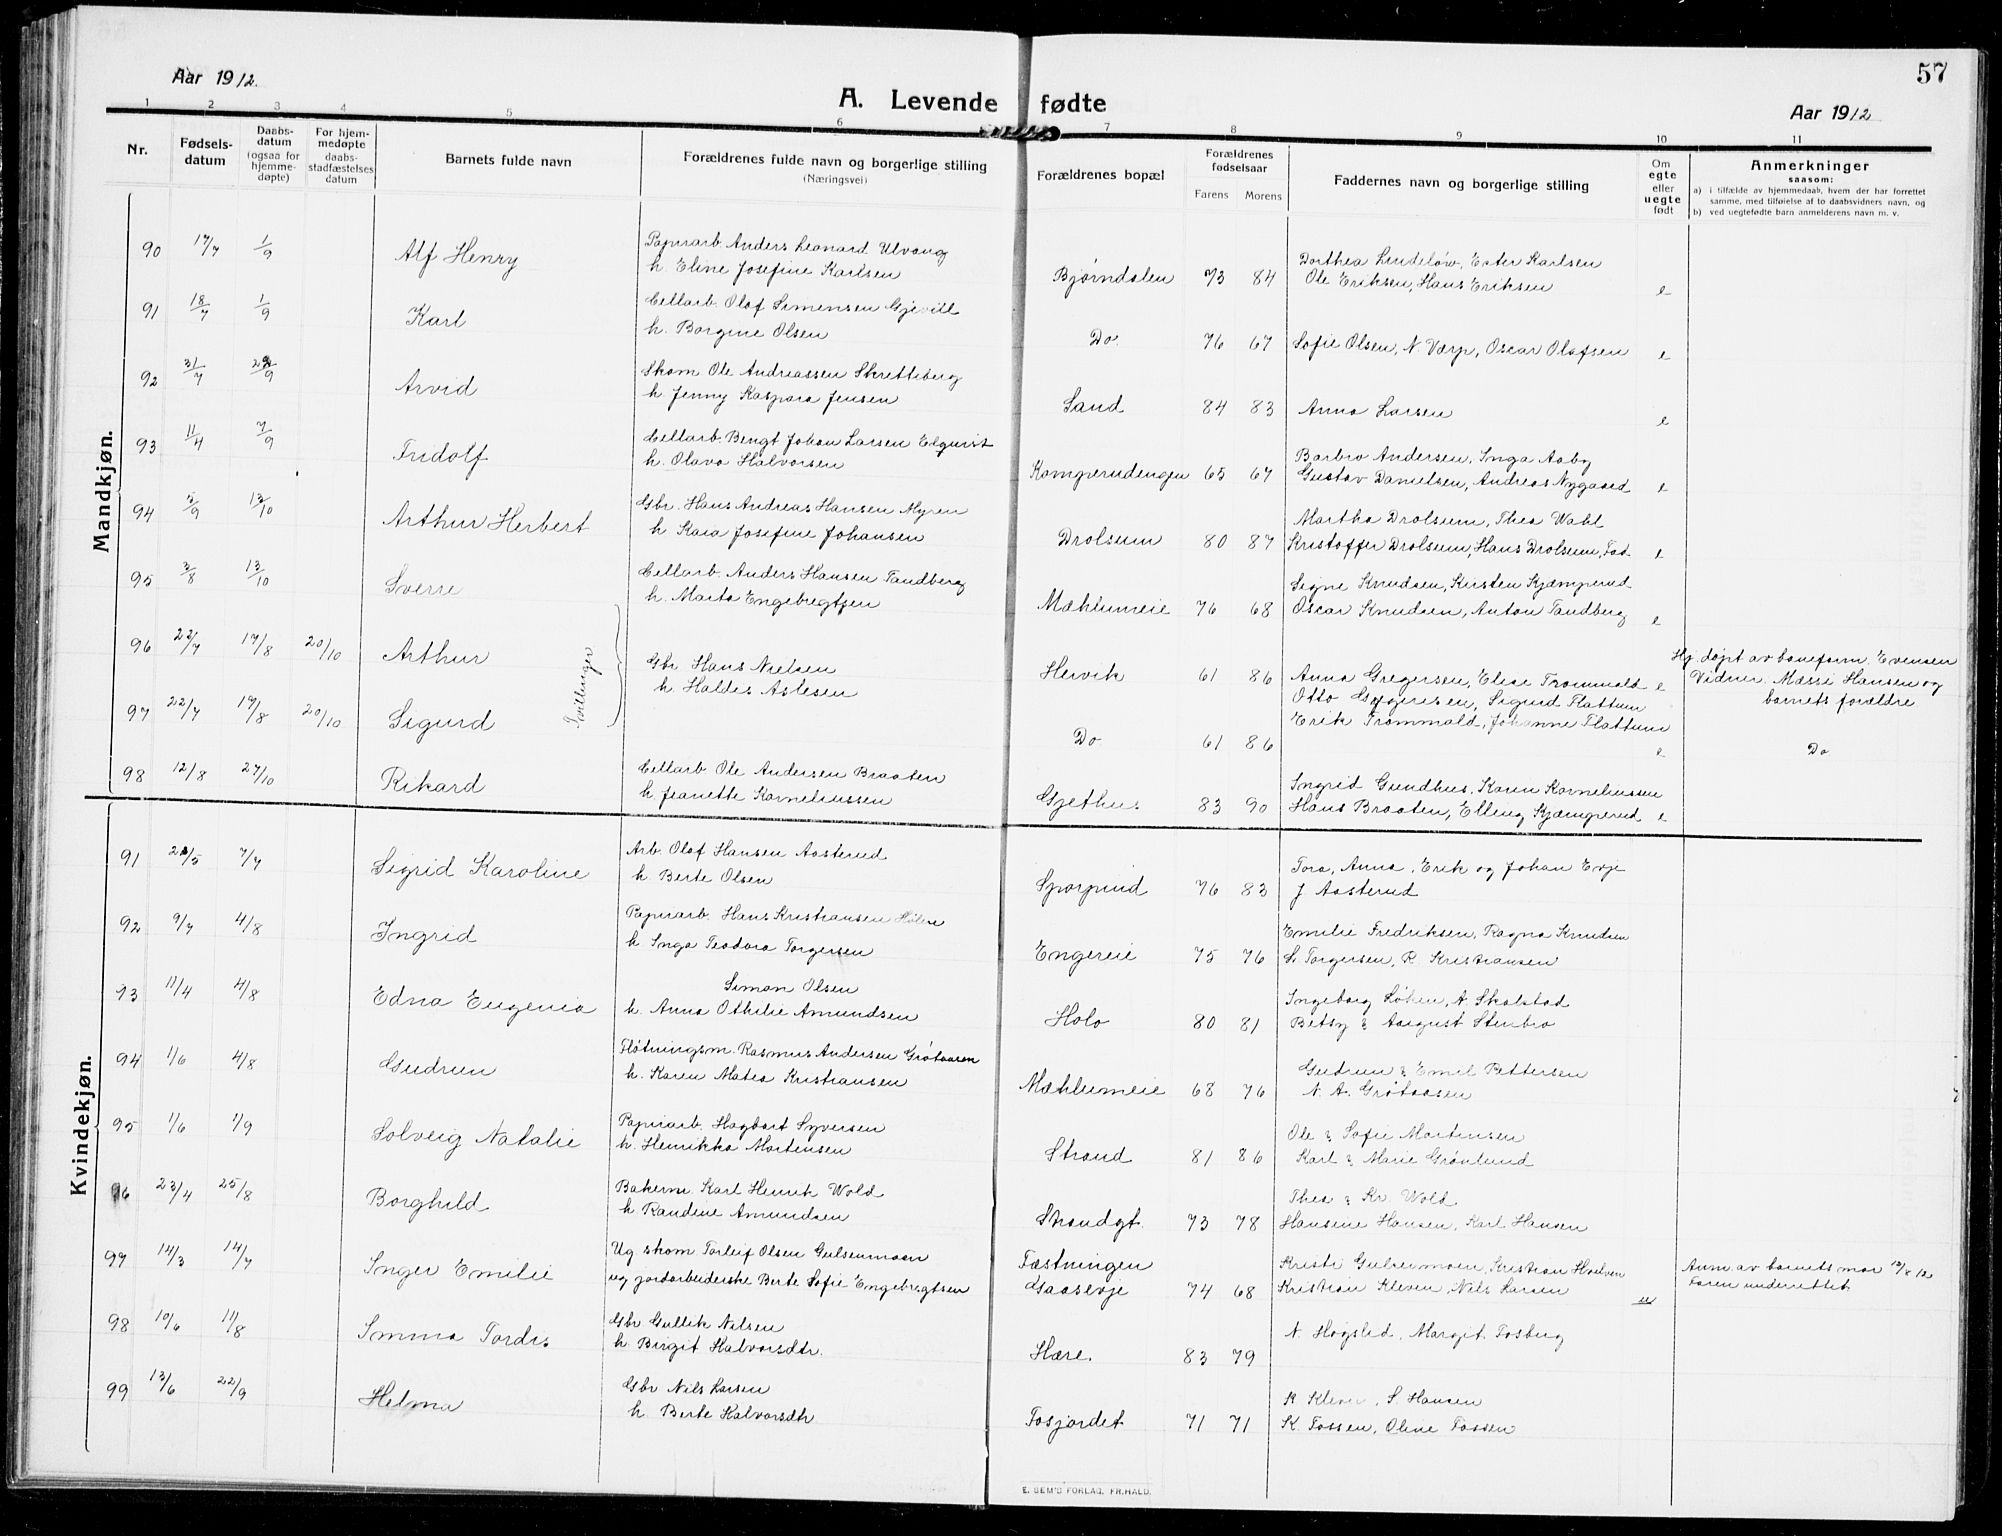 57
Aar 1912.
A. Levende fødte
Aar 1912
1 2 3 4 5 6 7 8 9 10 11
Nr.
Fødsels-
datum
Daabs-
datum
(ogsaa for
hjemme-
døpte)
For hjem-
medøpte
daabs-
stadfæstelses
datum
Barnets fulde navn
Forældrenes fulde navn og borgerlige stilling
(Næringsvei)
Forældrenes bopæl
Forældrenes
fødselsaar
Farens Morens
Faddernes navn og borgerlige stilling
Om
egte
eller
uegte
født
Anmerkninger
saasom:
a) i tilfælde av hjemmedaab, hvem der har forrettet
samme, med tilføielse af to daabsvidners navn, og
b) ved uegtefødte barn anmelderens navn m. v.
Mandkjøn.
90 17/7 1/9 Alf Henry
Papirarb. Anders Leonard Ulvang
h. Eline Josefine Karlsen
Bjørndalen 73 84
Dorthea Lindeløw, Ester Karlsen
Ole Eriksen, Hans Eriksen e
91 18/7 1/9 Karl
Cellarb. Olof Simensen Gjevill
h. Borgine Olsen
Do. 76 67 Sofie Olsen, N. Værp, Oscar Olafsen e
92 31/7 22/9 Arvid
Skom Ole Andreassen Skretteberg
h Jenny Kaspara Jensen
Sand 84 83 Anna Larsen e
93 11/4 7/9 Fridolf
Cellarb. Bengt Johan Larsen Elquist
h. Olava Halvorsen
Komperudengen 65 67
Barbro Andersen, Inga Aaby
Gustav Danielsen, Andreas Nygaard e
94 5/9 13/10 Arthur Herbert
Gbr. Hans Andreas Hansen Myren
h Kaia Josefine Johansen
Drolsum 80 87
Martha Drolsum, Thea Wahl
Kristoffer Drolsum, Hans Drolsum, Fad. e
95 3/8 13/10 Sverre
Cellarb. Anders Hansen Tandberg
h. Marta Engebregtsen
Mæhlumeie 76 68
Signe Knudsen, Kirsten Kjæmperud
Oscar Knudsen, Anton Tandberg e
96 22/7 17/8 20/10 Arthur
Tvillinger
Gbr Hans Nielsen
h. Haldis Aslesen
Hervik 61 86
Anna Gregersen, Elise Trommald e
Otto Gregersen, Sigurd Flattum
Hj. døpt av baneform. Evensen
Vidner. Massi Hansen og
barnets forældre
97 22/7 17/8 20/10 Sigurd
Do 61 86
Erik Trommald, Johanne Flattum
e Do
98 12/8 27/10 Rikard
Cellarb Ole Andersen Braaten
h. Jeanette Korneliussen
Gjethus 83 90
Ingrid Gundhus, Karen Korneliussen
Hans Braaten, Elling Kjæmperud e
Kvindekjøn.
91 21/5 7/7 Sigrid Karoline
Arb. Olaf Hansen Aasterud
h. Berte Olsen
Sporpind 76 83
Tora, Anna, Erik og Johan Evje
J Aasterud
92 9/7 4/8 Ingrid
Papirarb. Hans Kristiansen
h Inga Teodora Torgersen
Engereie 75 76
Emilie Fredriksen, Ragna Knudsen
S. Torgersen, R. Kristiansen
93 11/4 4/8 Edna Eugenia
Simon Olsen
h. Anna Othilie Amundsen
Holo 80 81
Ingeborg Løken, A. Skalstad
Betsy & Aagust Stenbro
94 1/6 4/8 Gudrun
Fløtningsm. Rasmus Andersen Grøtaasen
h. Karen Matea Kristiansen
Mæhlumeie 68 76
Gudrun & Emil Pettersen
N. A. Grøtaasen
95 1/6 1/9 Solveig Natalie
Papirarb. Hagbart Syversen
h. Henrikka Martinsen
Strand 81 86
Ole & Sofie Martinsen
Karl & Marie Grønlund
96 23/4 25/8 Borghild
Bakerm. Karl Henrik Wold
h Randine Amundsen
Strandgt. 73 78
Thea & Kr. Wold
Hansine Hansen, Karl Hansen
97 14/3 14/7 Inger Emilie
Ug. skom Torleif Olsen Gulsenmoen
ug jordarbeiderske Berte Sofie Engebregtsen
Fæstningen
Gaasevje 74 68
Kristi Gulsenmoen, Kristian Hvilven
Kristian Kleven, Nils Larsen u
Anm av barnets mor 12/8 12
Faren underrettet
98 10/6 11/8 Imma Tordis
Gbr Gullik Nilsen
h. Birgit Halvorsdtr.
Hære. 83 79
N. Høgslid, Margit Fosberg
99 13/6 22/9 Helma
Gbr Nils Larsen
h. Berte Halvorsdtr
Fosjordet 71 71
K Kleven, S. Hansen
K. Fossen, Oline Fossen
E. SEM'S FORLAG, FR.HALD.